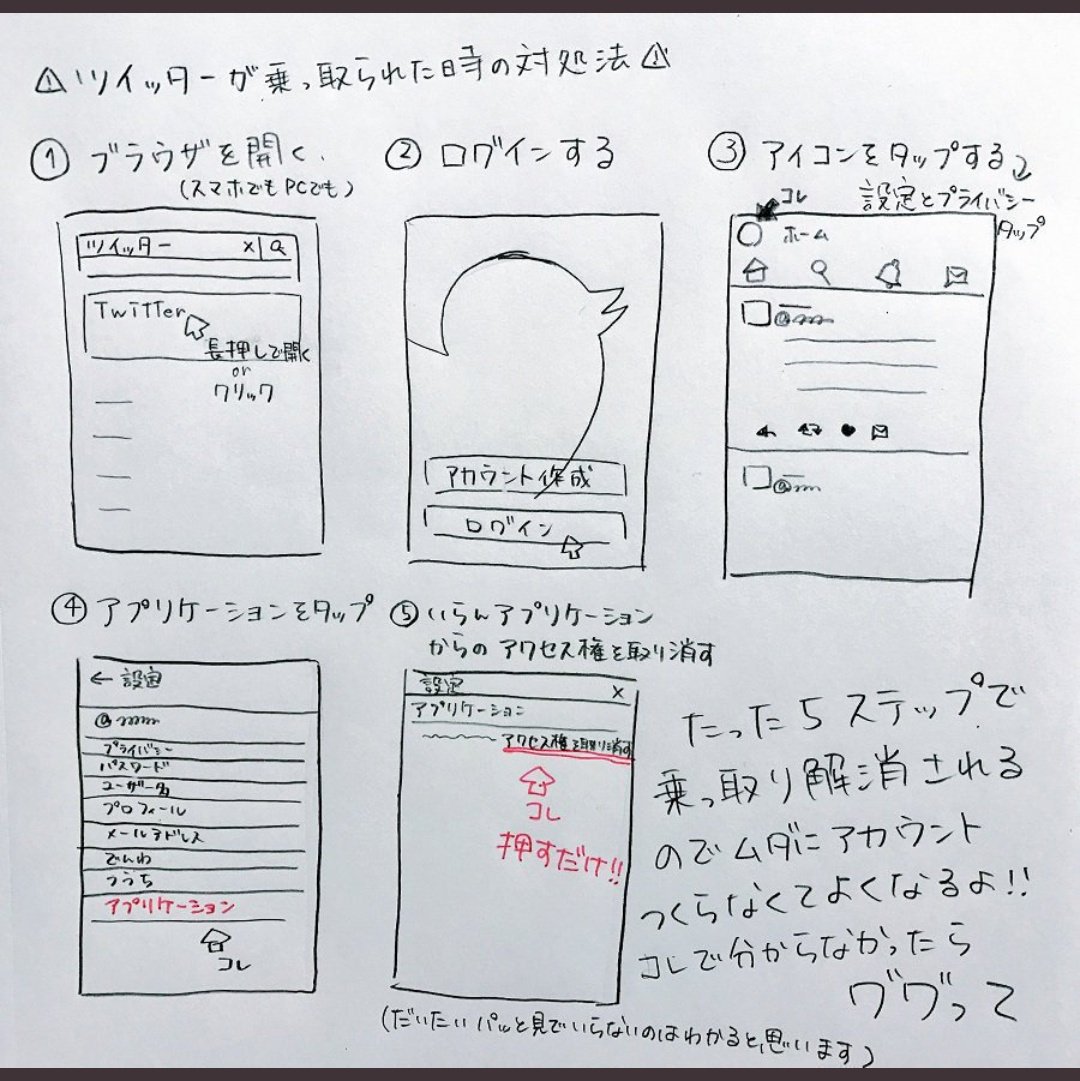 ⚠ツイッターが乗っ取られた時の対処法⚠
① ブラウザを開く.
(スマホでもPCでも)
ツイッター X
Twitter
長押しで開く
or
クリック
② ログインする
アカウント作成
ログイン
③ アイコンをタップする
設定とプライバシー
タップ
コレ
ホーム
@
@
④ アプリケーションをタップ
← 設定
@
プライバシー
パスワード
ユーザー名
プロフィール
メールアドレス
でんわ
つうち
アプリケーション
コレ
⑤ いらんアプリケーション
からの アクセス権を取り消す
設定 X
アプリケーション
アクセス権を取り消す
コレ
押すだけ!!
(だいたいパッと見でいらないのはわかると思います)
たった5ステップで
乗っ取り解消される
のでムダにアカウント
つくらなくてよくなるよ!!
コレで分からなかったら
ググって